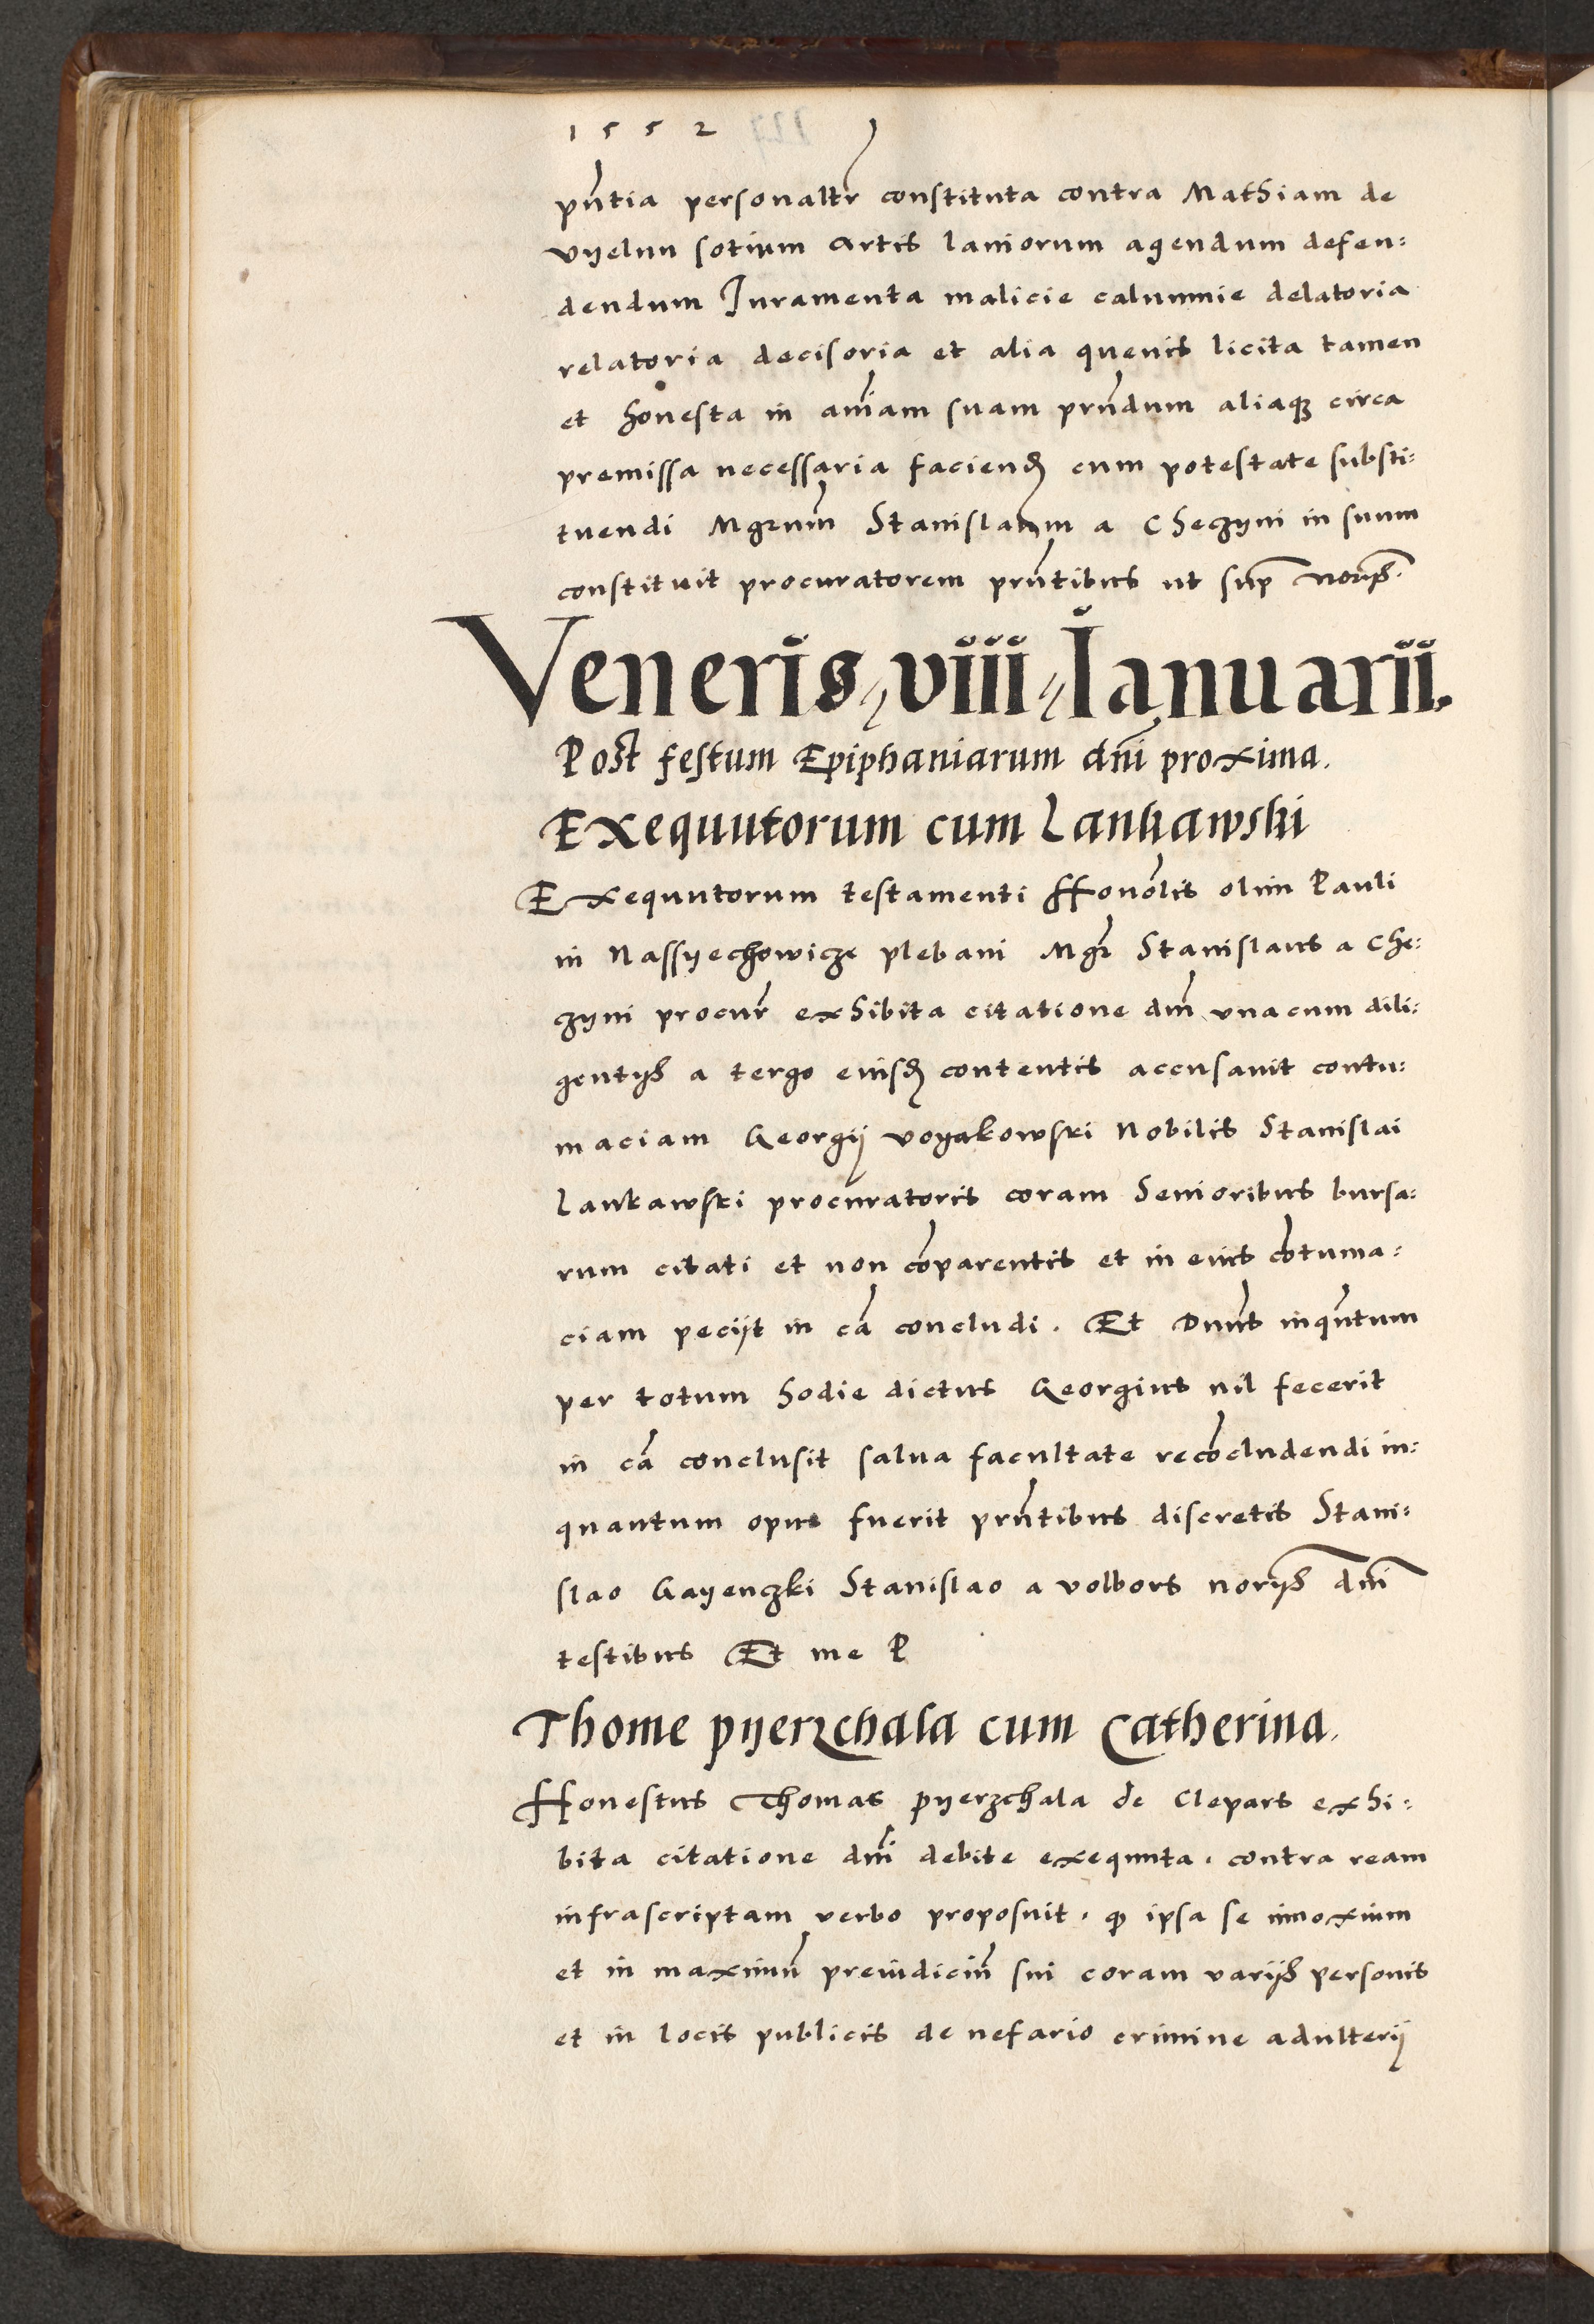 1552
pñtia personaltr constituta contra Mathiam de
vyelun sotium artis laniorum agendum defen:
dendum Iuramenta malicie calumnie delatoria
relatoria decisoria et alia quevis licita tamen
et honesta in aniam suam prñdum aliaqȝ circa
premissa necessaria faciendȝ cum potestate substi:
tuendi Mgrum Stanislaum a Checzyni in suum
constituit procuratorem prñtibus ut supͣ norijs.
Veneris viii Ianuarii.
Post festum Epiphaniarum dñi proxima.
Exequutorum cum Lankawski
Exequutorum testamenti Honolis olim Pauli
in Nassyechowicze plebani Mgr Stanislaus a Che:
czyni procur exhibita citatione dñi una cum dili:
gentijs a tergo eiusdȝ contentis accusauit contu:
maciam Georgij voyakowski Nobilis Stanislai
Lankawski procuratoris coram Senioribus bursa:
rum citati et non cõparentis et in eius cõtuma:
ciam peciit in cã concludi. Et Dnus inqñtum
per totum hodie dictus Georgius nil fecerit
in cã conclusit salua facultate recõcludendi in:
quantum opus fuerit prñtibus discretis Stani:
slao Gayenczki Stanislao a volbors norijs dñi
testibus Et me P
Thome pyerzchala cum Catherina.
Honestus Thomas pyerzchala de Clepars exhi:
bita citatione dñi debite exequuta. contra ream
infrascriptam verbo proposuit. qȝ ipsa se innoxium
et in maximũ preiudiciũ sui coram varijs personis
et in locis publicis de nefario crimine adulterij